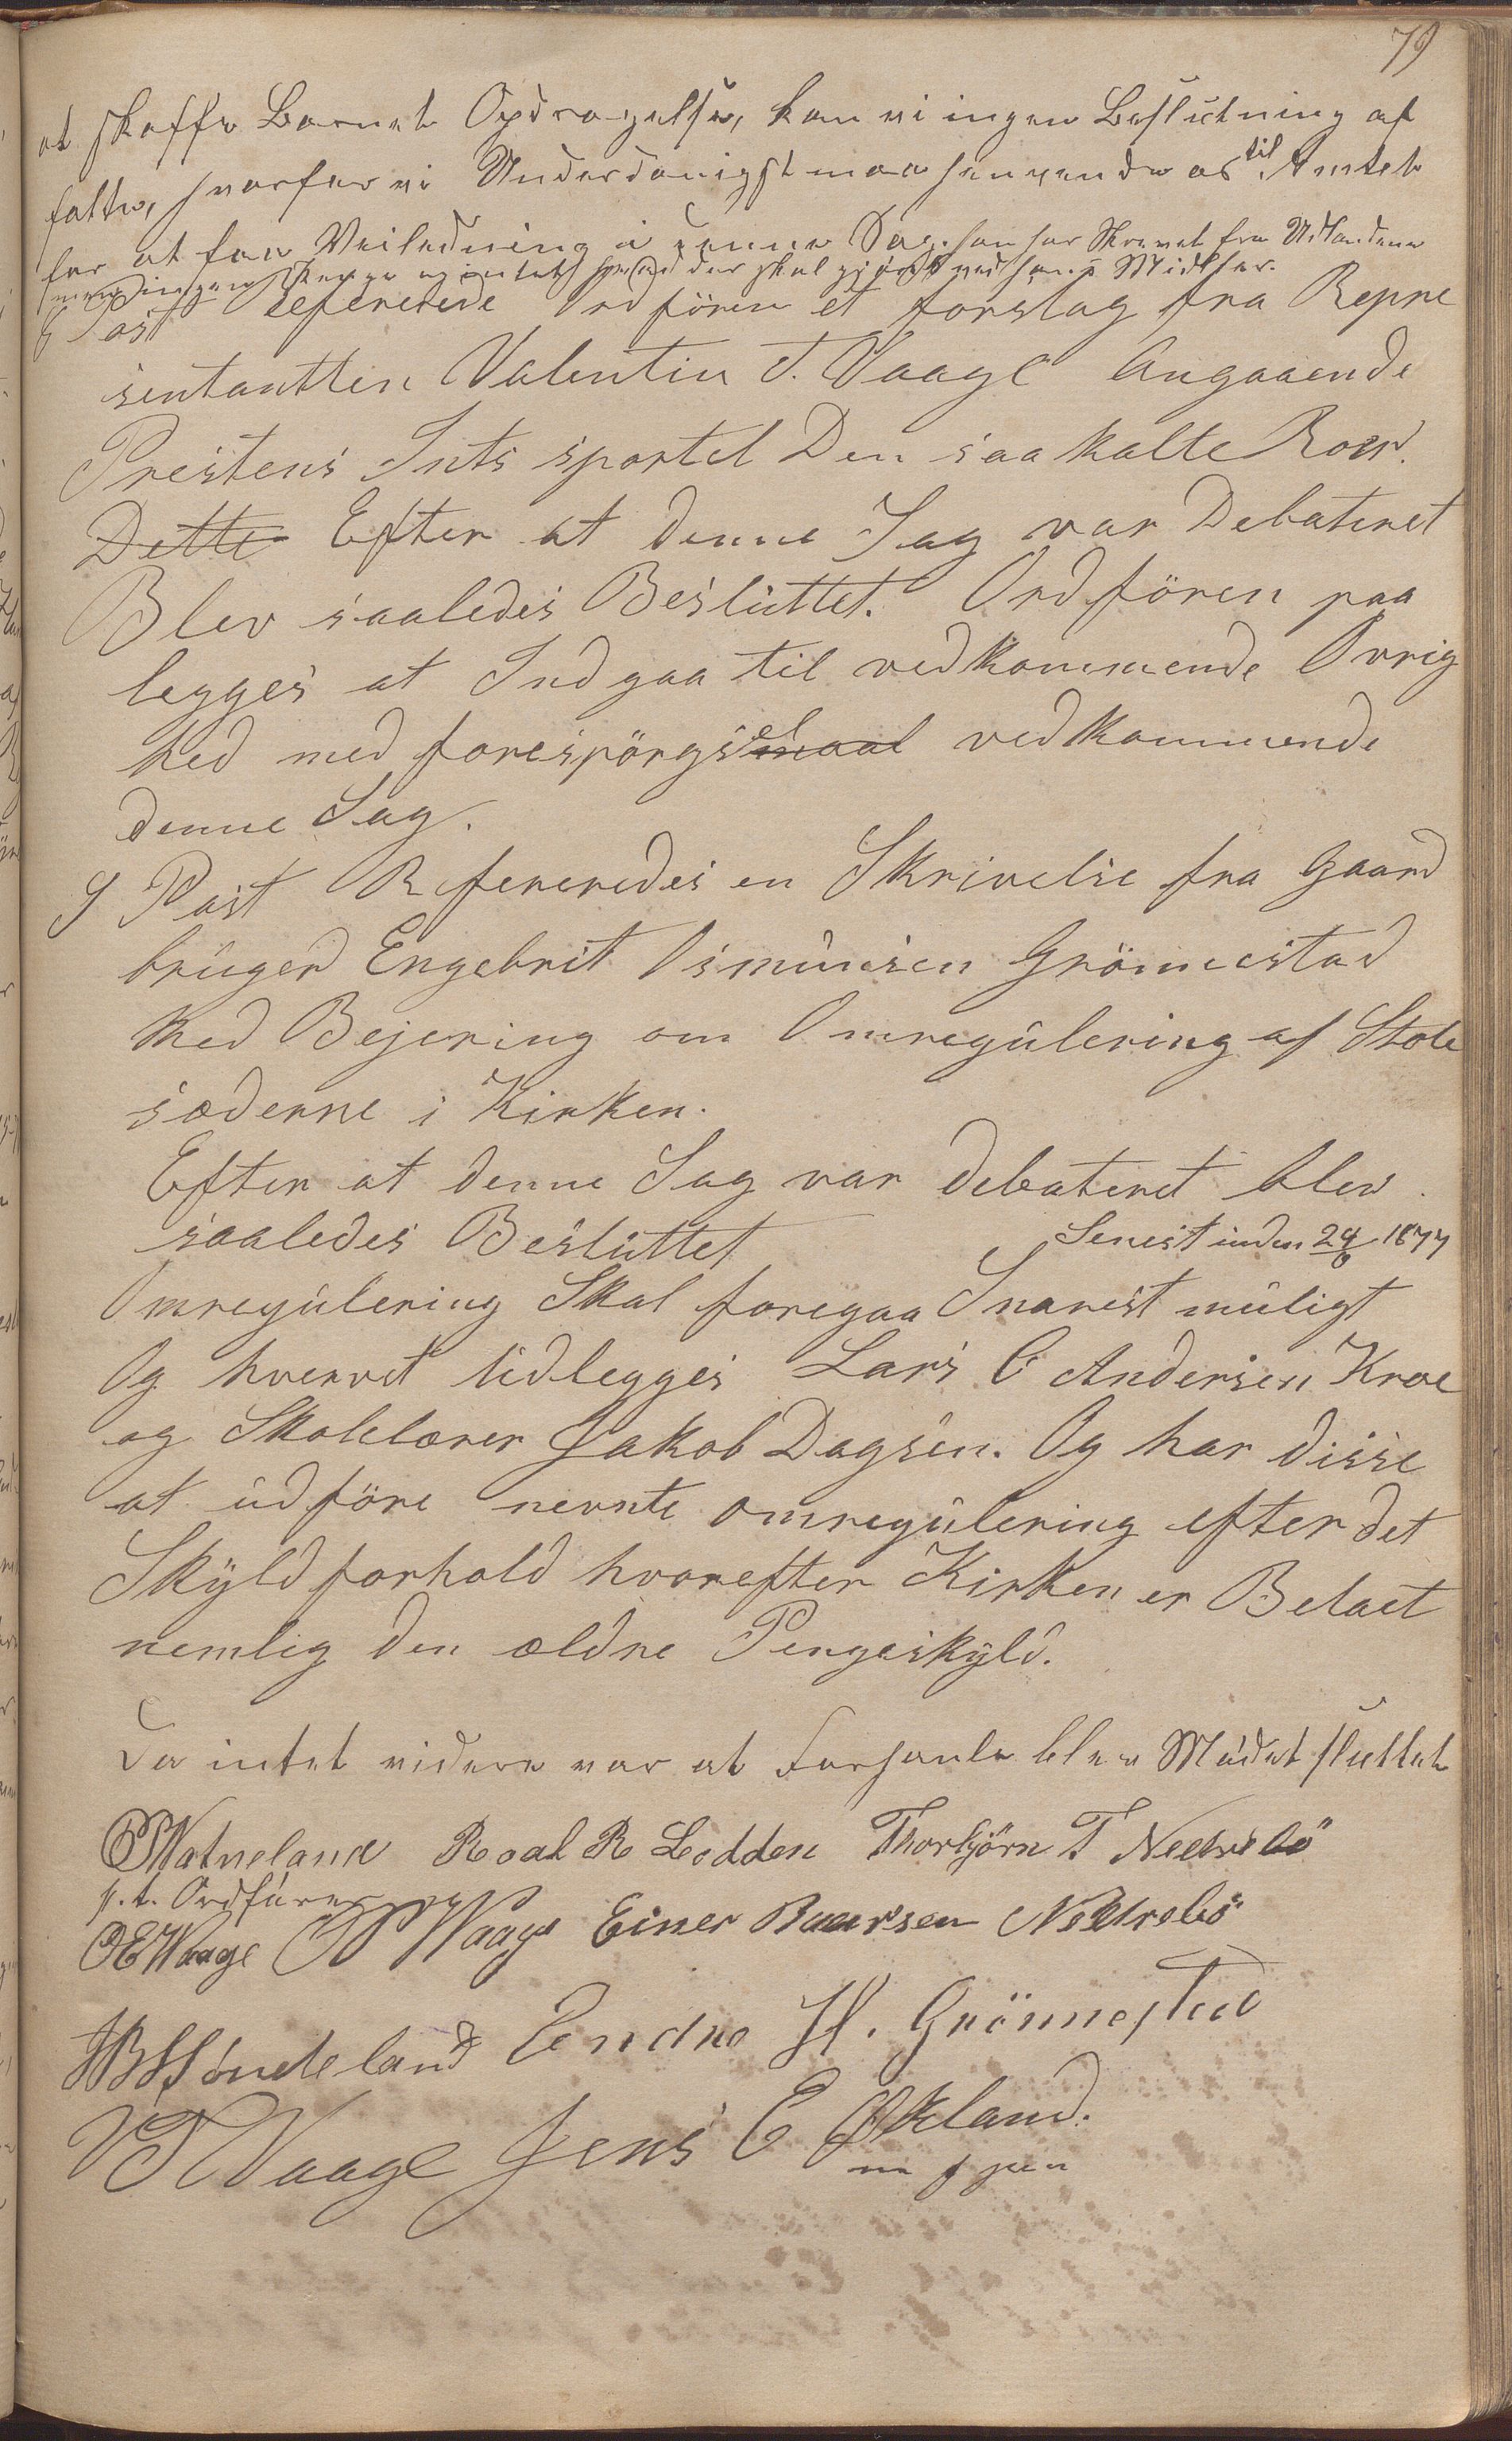 79
at skaffe Barnet Opdragelse, kan vi ingen Beslutning at
fatte, hvorfor vi Underdanigst maa henvende os til Amtet
for at faa Veiledning i denne Sag. han har Skrevet fra Udlandene
men ingen Penge og intet hvad der skal gjöres ved hans Midler.
8 Post Refereredes Ordfören et forslag fra Repre
sentantten Valentin T. Vaage Angaaende
Prestens Ints sportel Den saa kalte Roer.
Dette Efter at denne Sag var Debateret
Blev saaledes Besluttet. Ordfören paa
legges at Indgaa til vedkommende Övrig
hed med forespörgsmaal el vedkommende
denne Sag.
9 Post Refereredes en Skrivelse fra Gaard
bruger Engebrit Osmunsen Grönnestad
Med Bejering om Omregulering af Stole
sæderne i Kirken.
Efter at denne Sag var debateret blev
saaledes Besluttet
Senest inden 24/6 1877
Omregulering Skal foregaa Snarest muligt
Og hvervet Udlegges Lars C Andersen Kroe
og Skolelærer Jakob Dagsen. Og har disse
at udföre nevnte omregulering efter det
Skyldforhold hvorefter Kirken er Belaet
nemlig den ældre Pengeskyld.
Da intet videre var at Forhanle blev Mödet sluttet
Watneland Roal R Lodden Thorbjörn T Nedrebö
p.t. Ordförer
OE Waage Waage Einer Baarsen Nedrebö
Höndeland Endre H. Grönnestad
VT Vaage Jens E Ökland.